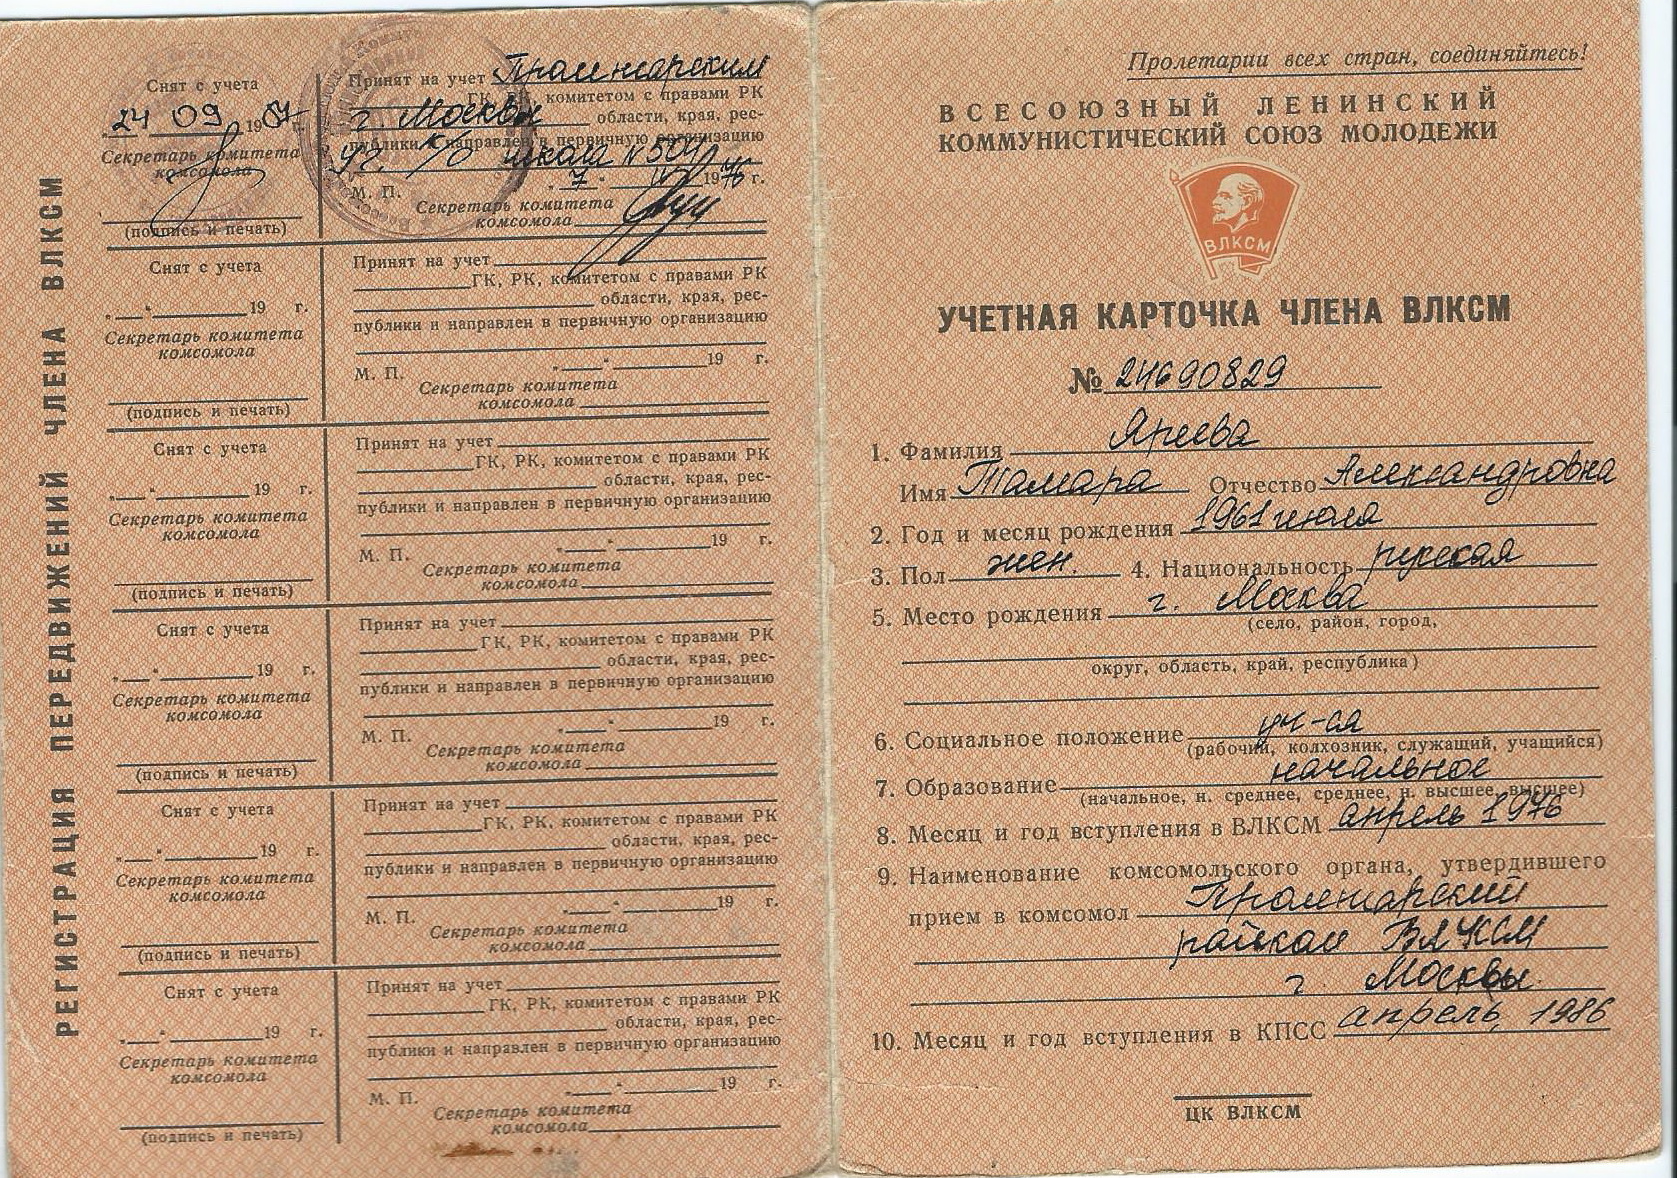 РЕГИСТРАЦИЯ ПЕРЕДВИЖЕНИЙ ЧЛЕНА ВЛКСМ
Снят с учета
„24" 09 1987 г.
Секретарь комитета
комсомола
(подпись и печать)
Принят на учет Пролетарским
ГК, РК, комитетом с правами РК
г. Москвы области, края, рес-
публики и направлен в первичную организацию
школы N 504
М. П. „7" 1976 г.
Секретарь комитета
комсомола
Снят с учета
„ " 19 г.
Секретарь комитета
комсомола
(подпись и печать)
Принят на учет
ГК, РК, комитетом с правами РК
области, края, рес-
публики и направлен в первичную организацию
„ " 19 г.
М. П.
Секретарь комитета
комсомола
Снят с учета
„ " 19 г.
Секретарь комитета
комсомола
(подпись и печать)
Принят на учет
ГК, РК, комитетом с правами РК
области, края, рес-
публики и направлен в первичную организацию
„ " 19 г.
М. П.
Секретарь комитета
комсомола
Снят с учета
„ " 19 г.
Секретарь комитета
комсомола
(подпись и печать)
Принят на учет
ГК, РК, комитетом с правами РК
области, края, рес-
публики и направлен в первичную организацию
„ " 19 г.
М. П.
Секретарь комитета
комсомола
Снят с учета
„ " 19 г.
Секретарь комитета
комсомола
(подпись и печать)
Принят на учет
ГК, РК, комитетом с правами РК
области, края, рес-
публики и направлен в первичную организацию
„ " 19 г.
М. П.
Секретарь комитета
комсомола
Снят с учета
„ " 19 г.
Секретарь комитета
комсомола
(подпись и печать)
Принят на учет
ГК, РК, комитетом с правами РК
области, края, рес-
публики и направлен в первичную организацию
„ " 19 г.
М. П.
Секретарь комитета
комсомола
Пролетарии всех стран, соединяйтесь!
ВСЕСОЮЗНЫЙ ЛЕНИНСКИЙ
КОММУНИСТИЧЕСКИЙ СОЮЗ МОЛОДЕЖИ
ВЛКСМ
УЧЕТНАЯ КАРТОЧКА ЧЛЕНА ВЛКСМ
№ 24690829
1. Фамилия Яреева
Имя Тамара Отчество Александровна
2. Год и месяц рождения 1961 июля
3. Пол жен. 4. Национальность русская
5. Место рождения г. Москва
(село, район, город,
округ, область, край, республика)
6. Социальное положение уч-ся
(рабочий, колхозник, служащий, учащийся)
7. Образование начальное
(начальное, н. среднее, среднее, н. высшее, высшее)
8. Месяц и год вступления в ВЛКСМ апрель 1976
9. Наименование комсомольского органа, утвердившего
прием в комсомол Пролетарский
райком ВЛКСМ
г. Москвы.
10. Месяц и год вступления в КПСС апрель, 1986
ЦК ВЛКСМ